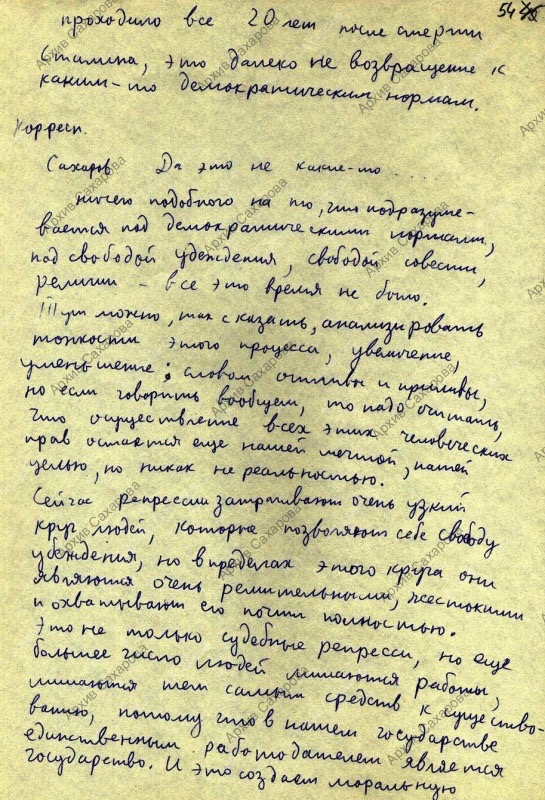 54
проходило все 20 лет после смерти
Сталина, это далеко не возвращение к
каким-то демократическим нормам.
Корресп.
Сахаров Да это не какие-то ....
ничего подобного на то, что подразуме-
вается под демократическими нормами,
под свободой убеждения, свободой совести,
религии - все это время не было.
Тут можно, так сказать, анализировать
тонкости этого процесса, увеличение,
уменьшение; словом отливы и приливы,
но если говорить вообщем, то надо считать,
что осуществление всех этих человеческих
прав остается еще нашей мечтой, нашей
целью, но никак не реальностью.
Сейчас репрессии затрагивают очень узкий
круг людей, которые позволяют себе свободу
убеждения, но в пределах этого круга они
являются очень решительными, жестокими
и охватывают его почти полностью.
Это не только судебные репрессии, но еще
большее число людей лишаются работы,
лишаются тем самым средств к существо-
ванию, потому что в нашем государстве
единственным работодателем является
государство. И это создает моральную
Архив Сахарова